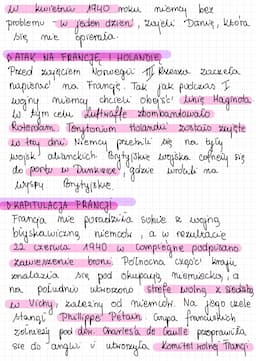 W kwietniu 1940 roku niemcy bez
problemu w jeden dzień, zajęli Danię, która
się nie opierała.
ATAK NA FRANCJĘ I HOLANDIĘ
Przed zajęciem Norwegii III Rzesza zaczęła
napierać na Francję. Tak jak podczas I
wojny niemcy chcieli obejść linię Maginota
W tym celu Luftwaffe zbombardowało
Rotterdam. Terytorium Holandii zostało zajęte
w trzy dni. Niemcy przebili się na tyły
wojsk alianckich. Brytyjskie wojska cofnęły się
do portu w Dunkierce, gdzie wrócili na
wyspy Brytyjskie.
KAPITULACJA FRANCJI
Francja nie poradziła sobie z wojną
błyskawiczną niemców, a w rezultacie
22 czerwca 1940 w Compiegne podpisano
zawieszenie broni. Północna część kraju
znalazła się pod okupacją niemiecką, a
na południu utworzono strefę wolną z siedzibą
w Vichy, zależny od niemców. Na jego czele
stanął Philippe Pétain. Grupa francuskich
żołnierzy pod dow. Charles'a de Gaulle przeprawiła
się do Anglii i utworzyła Komitet Wolnej Francji